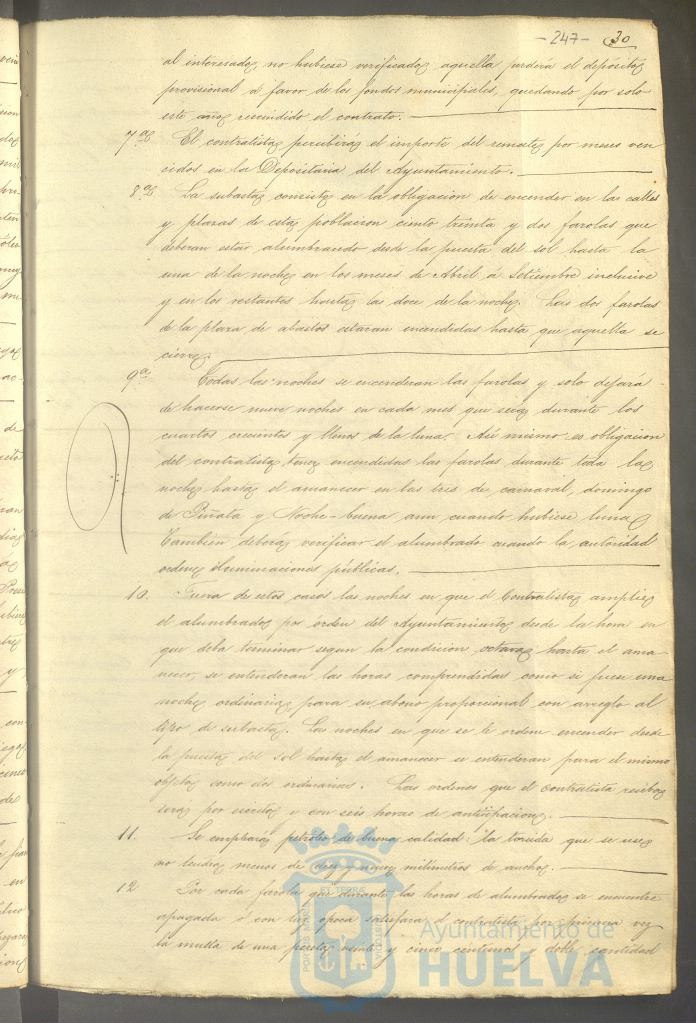 - 247 - 30
al interesado, no hubiese verificado aquella perderá el depósito
provisional á favor de los fondos municipales, quedando por solo
este año rescindido el contrato.
7ª El contratista percibirá el importe del remate por meses ven
cidos en la Depositaria del Ayuntamiento.
8ª La subasta consiste en la obligacion de encender en las calles
y plazas de esta poblacion ciento treinta y dos farolas que
deberan estar alumbrando desde la puesta del sol hasta la
una de la noche en los meses de Abril á Setiembre inclusive
y en los restantes hasta las doce de la noche. Las dos farolas
de la plaza de abastos estaran encendidas hasta que aquella se
cierre.
9ª Todas las noches se encenderan las farolas y solo dejará
de hacerse nueve noches en cada mes que sea durante los
cuartos crecientes y llenos de la luna. Asi mismo es obligacion
del contratista tener encendidas las farolas durante toda la
noche hasta el amanecer en las tres de carnaval, domingo
de Piñata y Noche-buena aun cuando hubiese luna
Tambien deberá verificar el alumbrado cuando la autoridad
ordene iluminaciones públicas.
10. Fuera de estos casos las noches en que el Contratista amplie
el alumbrado por orden del Ayuntamiento desde la hora en
que deba terminar segun la condicion octava hasta el ama
necer, se entenderan las horas comprendidas como si fuese una
noche ordinaria para su abono proporcional con arreglo al
tipo de subasta. Las noches en que se le ordene encender desde
la puesta del sol hasta el amanecer se entenderan para el mismo
objeto como dos ordinarias. Las ordenes que el contratista reciba
seran por escrito y con seis horas de anticipacion.
11. Se empleará petroleo de buena calidad: la torcida que se use
no tendra menos de diez y nueve milimetros de ancho.
12 Por cada farola que durante las horas de alumbrado se encuentre
apagada ó con luz opaca satisfara el contratista por primera vez
la multa de una peseta veinte y cinco centimos y doble cantidad
Ayuntamiento de
HUELVA